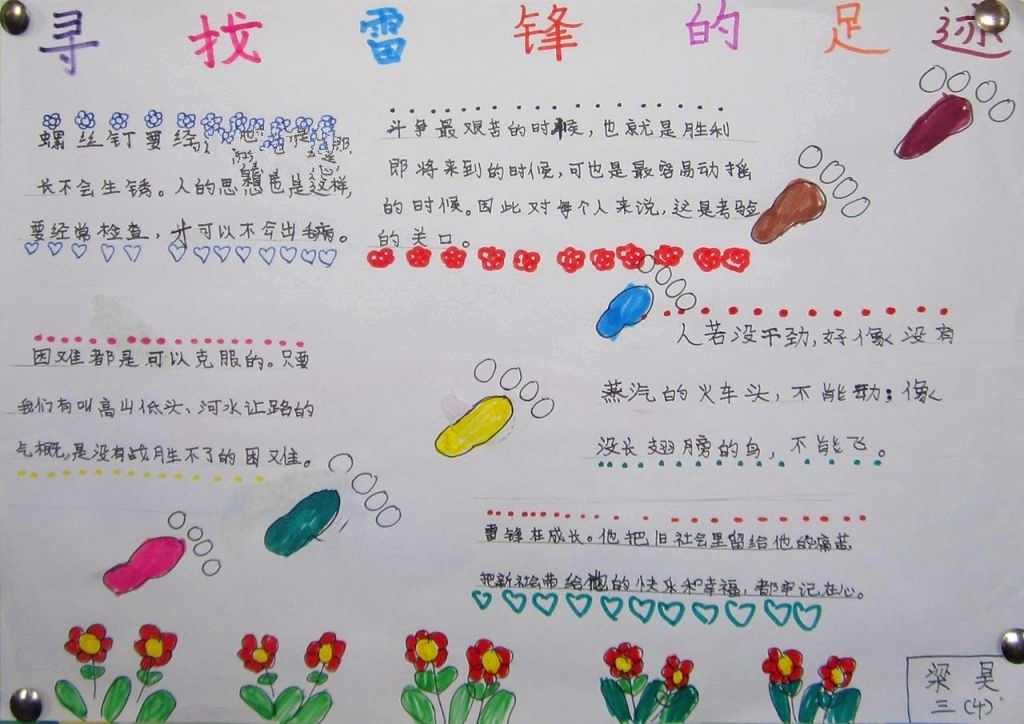 寻找雷锋的足迹
螺丝钉要经
长不会生锈。人的思想也是这样,
要经常检查,才可以不会出毛病。
斗争最艰苦的时候,也就是胜利
即将来到的时候,可也是最容易动摇
的时候。因此对每个人来说,这是考验
的关口。
困难都是可以克服的。只要
我们有叫高山低头、河水让路的
气概,是没有战胜不了的困难。
人若没干劲,好像没有
蒸汽的火车头,不能动;像
没长翅膀的鸟,不能飞。
雷锋在成长。他把旧社会里留给他的痛苦
把新社会带给他的快乐和幸福,都牢记在心。
梁昊
三(4)